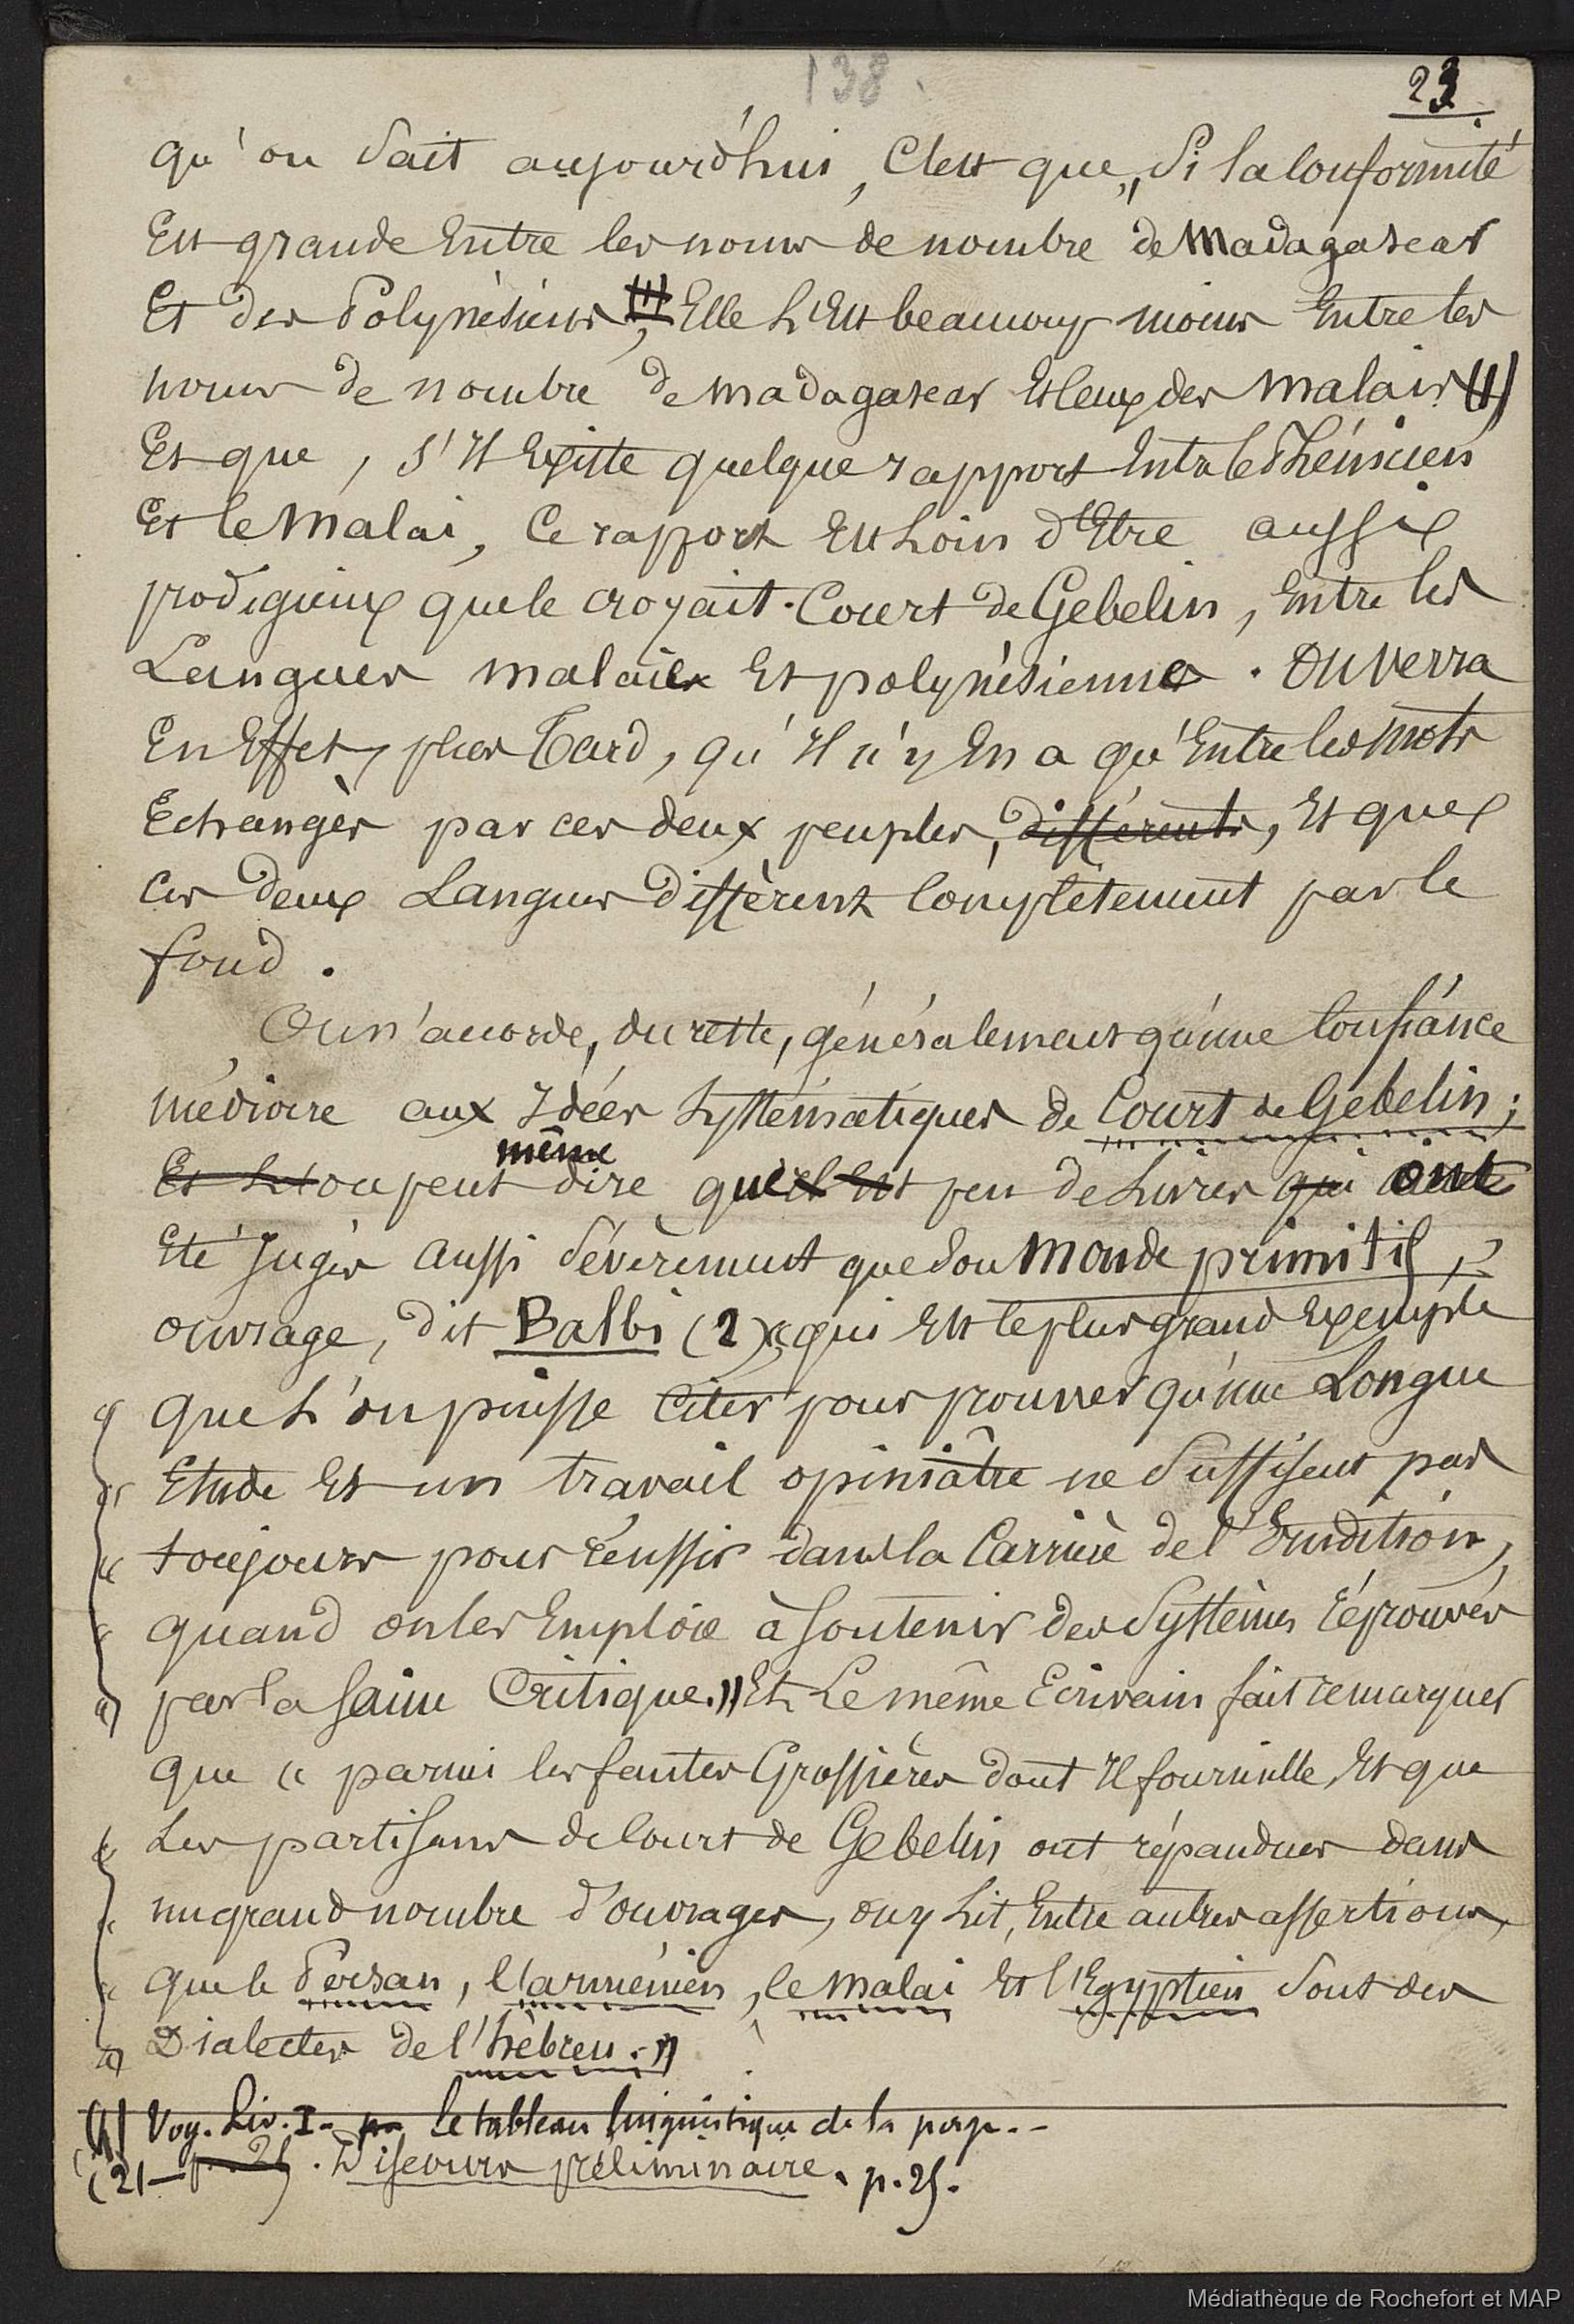 138.
23
qu'on sait aujourd'hui, c'est que, si la conformité
Est grande Entre les noms de nombre de Madagascar
Et des Polynésiens, Elle l'Est beaucoup moins Entre les
noms de nombre de Madagascar Et ceux des Malais (1)
Et que, s'Il Existe quelque rapport Entre le Phénicien
Et le Malai, Ce rapport Est Loin d'Etre aussi
prodigieux que le croyait Court de Gebelin, Entre les
Langues malaise Et polynésienne. On verra
En Effet, plus Tard, qu'Il n'y En a qu'Entre les mots
Echangés par ces deux peuples, différents, Et que
ces deux Langues diffèrent complètement par le
fond.
On n'accorde, du reste, généralement qu'une confiance
médiocre aux Idées Systématiques de Court de Gébelin;
Et L'on peut même dire qu'il Est peu de Livres qui ont
Eté Jugés aussi sévèrement que son Monde primitif,
ouvrage, dit Balbi (2) « qui Est le plus grand Exemple
« que L'on puisse citer pour prouver qu'une Longue
« Etude Et un travail opiniâtre ne suffisent pas
« toujours pour réussir dans la Carrière de l'Erudition,
« quand on les Emploie à soutenir des Systèmes réprouvés
« par la saine Critique.» Et Le même Ecrivain fait remarquer
que « parmi les fautes Grossières dont Il fourmille, Et que
« Les partisans de Court de Gebelin ont répandues dans
« un grand nombre d'ouvrages, on y Lit, Entre autres assertions,
« que le Persan, l'arménien, le Malai Et l'Egyptien sont des
« Dialectes de l'hébreu.»
(1) Voy. Liv. I - le tableau linguistique de la page. -
(2) - p. 25. Discours préliminaire, p. 25.
Médiathèque de Rochefort et MAP